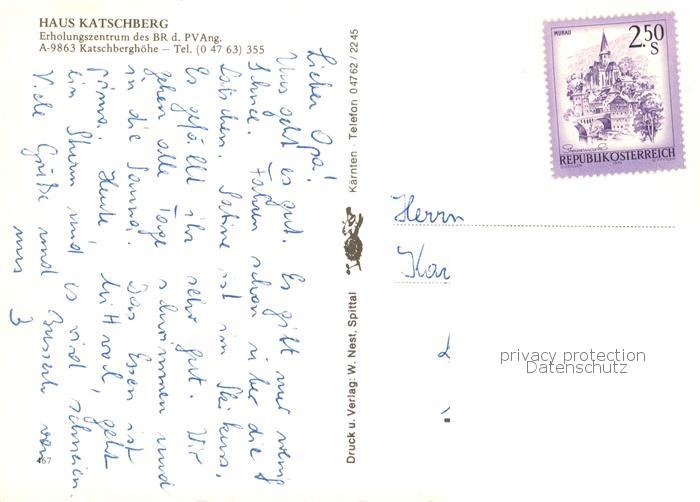 HAUS KATSCHBERG
Erholungszentrum des BR d. PVAng.
A-9863 Katschberghöhe — Tel. (0 47 63) 355
Lieber Opa!
Uns geht es gut. Es gibt nur wenig
Schnee. Fahren schon über die
Lötschen. Sabine ist im Skikurs.
Es gefällt ihr sehr gut. Wir
gehen alle Tage schwimmen und
in die Sauna. Das Essen ist
prima. Heute
ein Sturm und es wird schneien.
Viele Grüße und Busserl von
uns 3
467
Druck u. Verlag: W. Nest, Spittal
Kärnten · Telefon 0 47 62 / 22 45
MURAU
2.50
S
REPUBLIK ÖSTERREICH
Herrn
Kar
privacy protection
Datenschutz